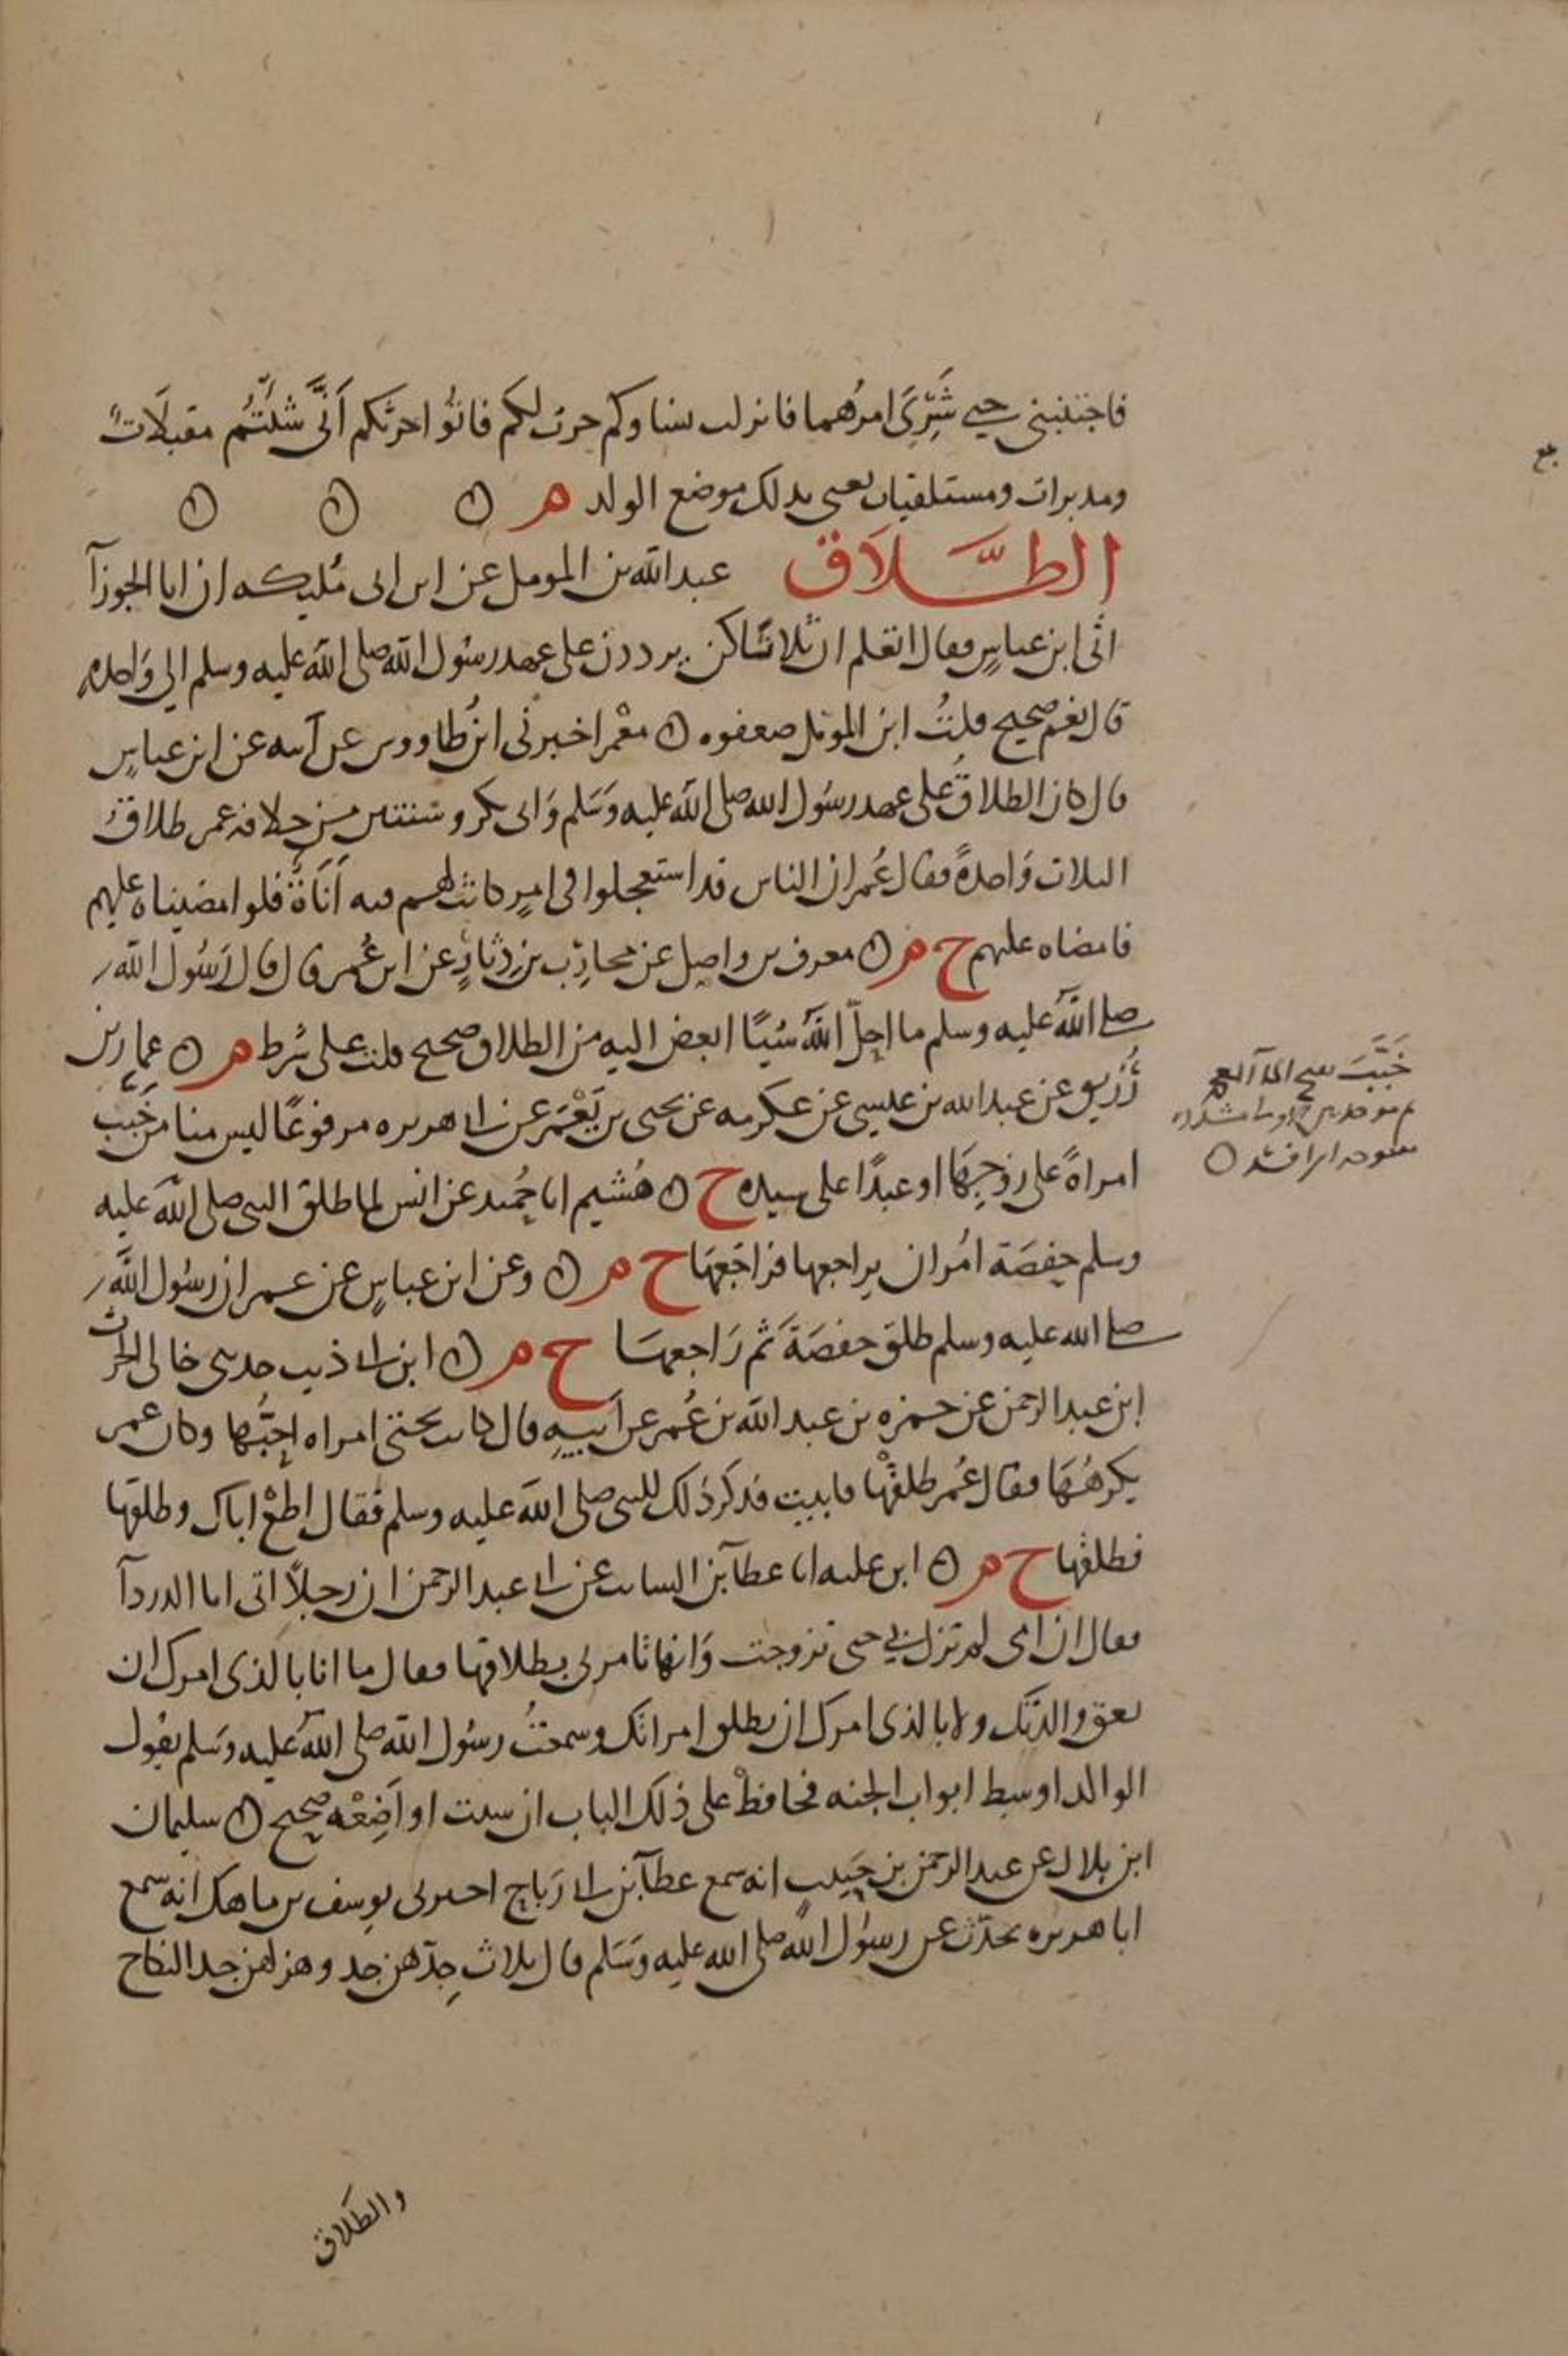 فاجتنبني حتى شَرِيَ امرُهما فانزلت نساوكم حرث لكم فاتوُا حرثكم اَنَّى شئتُم مقبلَات
ومدبرات ومستلقيات يعني بذلك موضع الولد م
الطَّلَاق عبد الله بن المومل عن ابن ابي مُليكه ان ابا الجوزآ
اتى ابن عباسٍ فقال اتعلم ان ثلاثاً كن يرددن على عهد رسُول الله صلى الله عليه وسلم الى وَاحده
قال نعم صحيح قلتُ ابن المومّل ضعفوه معْمر اخبرني ابنُ طاووس عن اَبيه عن ابن عباسٍ
قال كان الطلاقُ على عهد رسُول الله صلى الله عليه وسَلم وَابي بكر وسنتين من خلافه عمر طلاقُ
الثلاث وَاحدةً فقال عُمر ان الناس قد استعجلوا في امرٍ كانت لهم فيه اَنَاةٌ فلو امضيناه عليهم
فامضاه عليهم خ م معرف بن واصل عن محارِب بن دِثارٍ عن ابن عُمر قال قال رَسُول الله
صلى الله عليه وسلم ما احلّ اللهُ شيًا ابغض اليه من الطلاق صحيح قلت على شرط م عمار بن
رُزيق عن عبد الله بن عيسى عن عكرمه عن يحيى بن يَعْمَر عن ابي هريره مرفوعًا ليس منا من خَبَّب
امراةً على زوجِهَا او عبدًا على سيده خ هُشيم انا حُميد عن انس لما طلق النبي صلى الله عليه
وسلم حفصَة امُر ان يراجعها فراجَعهَا خ م وعن ابن عباسٍ عن عمر ان رسُول الله
صلى الله عليه وسلم طلق حفصَةَ ثم رَاجعهَا خ م ابن ابي ذيب حدثني خالى الحرث
ابن عبد الرحمن عن حمزه بن عبد الله بن عُمر عن اَبيهِ قال كانت تحتي امراه احبُّها وكان عمر
يكرهُهَا فقال عُمر طلقْها فابيت فذكر ذلك للنبي صلى الله عليه وسلم فقال اطعْ اباك وطلقها
فطلقها خ م ابن عليه انا عطآ بن السائب عن ابي عبد الرحمن ان رجلاً اتى ابا الدردآ
فقال ان امى لم تزل بي حتى تزوجت وَانها تامرني بطلاقها فقال ما انا بالذي امرك ان
تعق والدتك ولا بالذي امرك ان تطلق امراتك وسمعتُ رسُول الله صلى الله عليه وسَلم يقول
الوالد اوسط ابواب الجنه فحافظْ على ذلك الباب ان شئت او اَضِعْه صحيح سليمان
ابن بلال عن عبد الرحمن بن حَبيب انه سمع عطآ بن ابي رَباح اخبرني يوسف بن ماهك انه سمع
ابا هريره يحدّث عن رسُول الله صلى الله عليه وسَلم قال ثلاث جِدّهن جد وهزلهن جد النكاح
خَبَّبَ
والطلاق